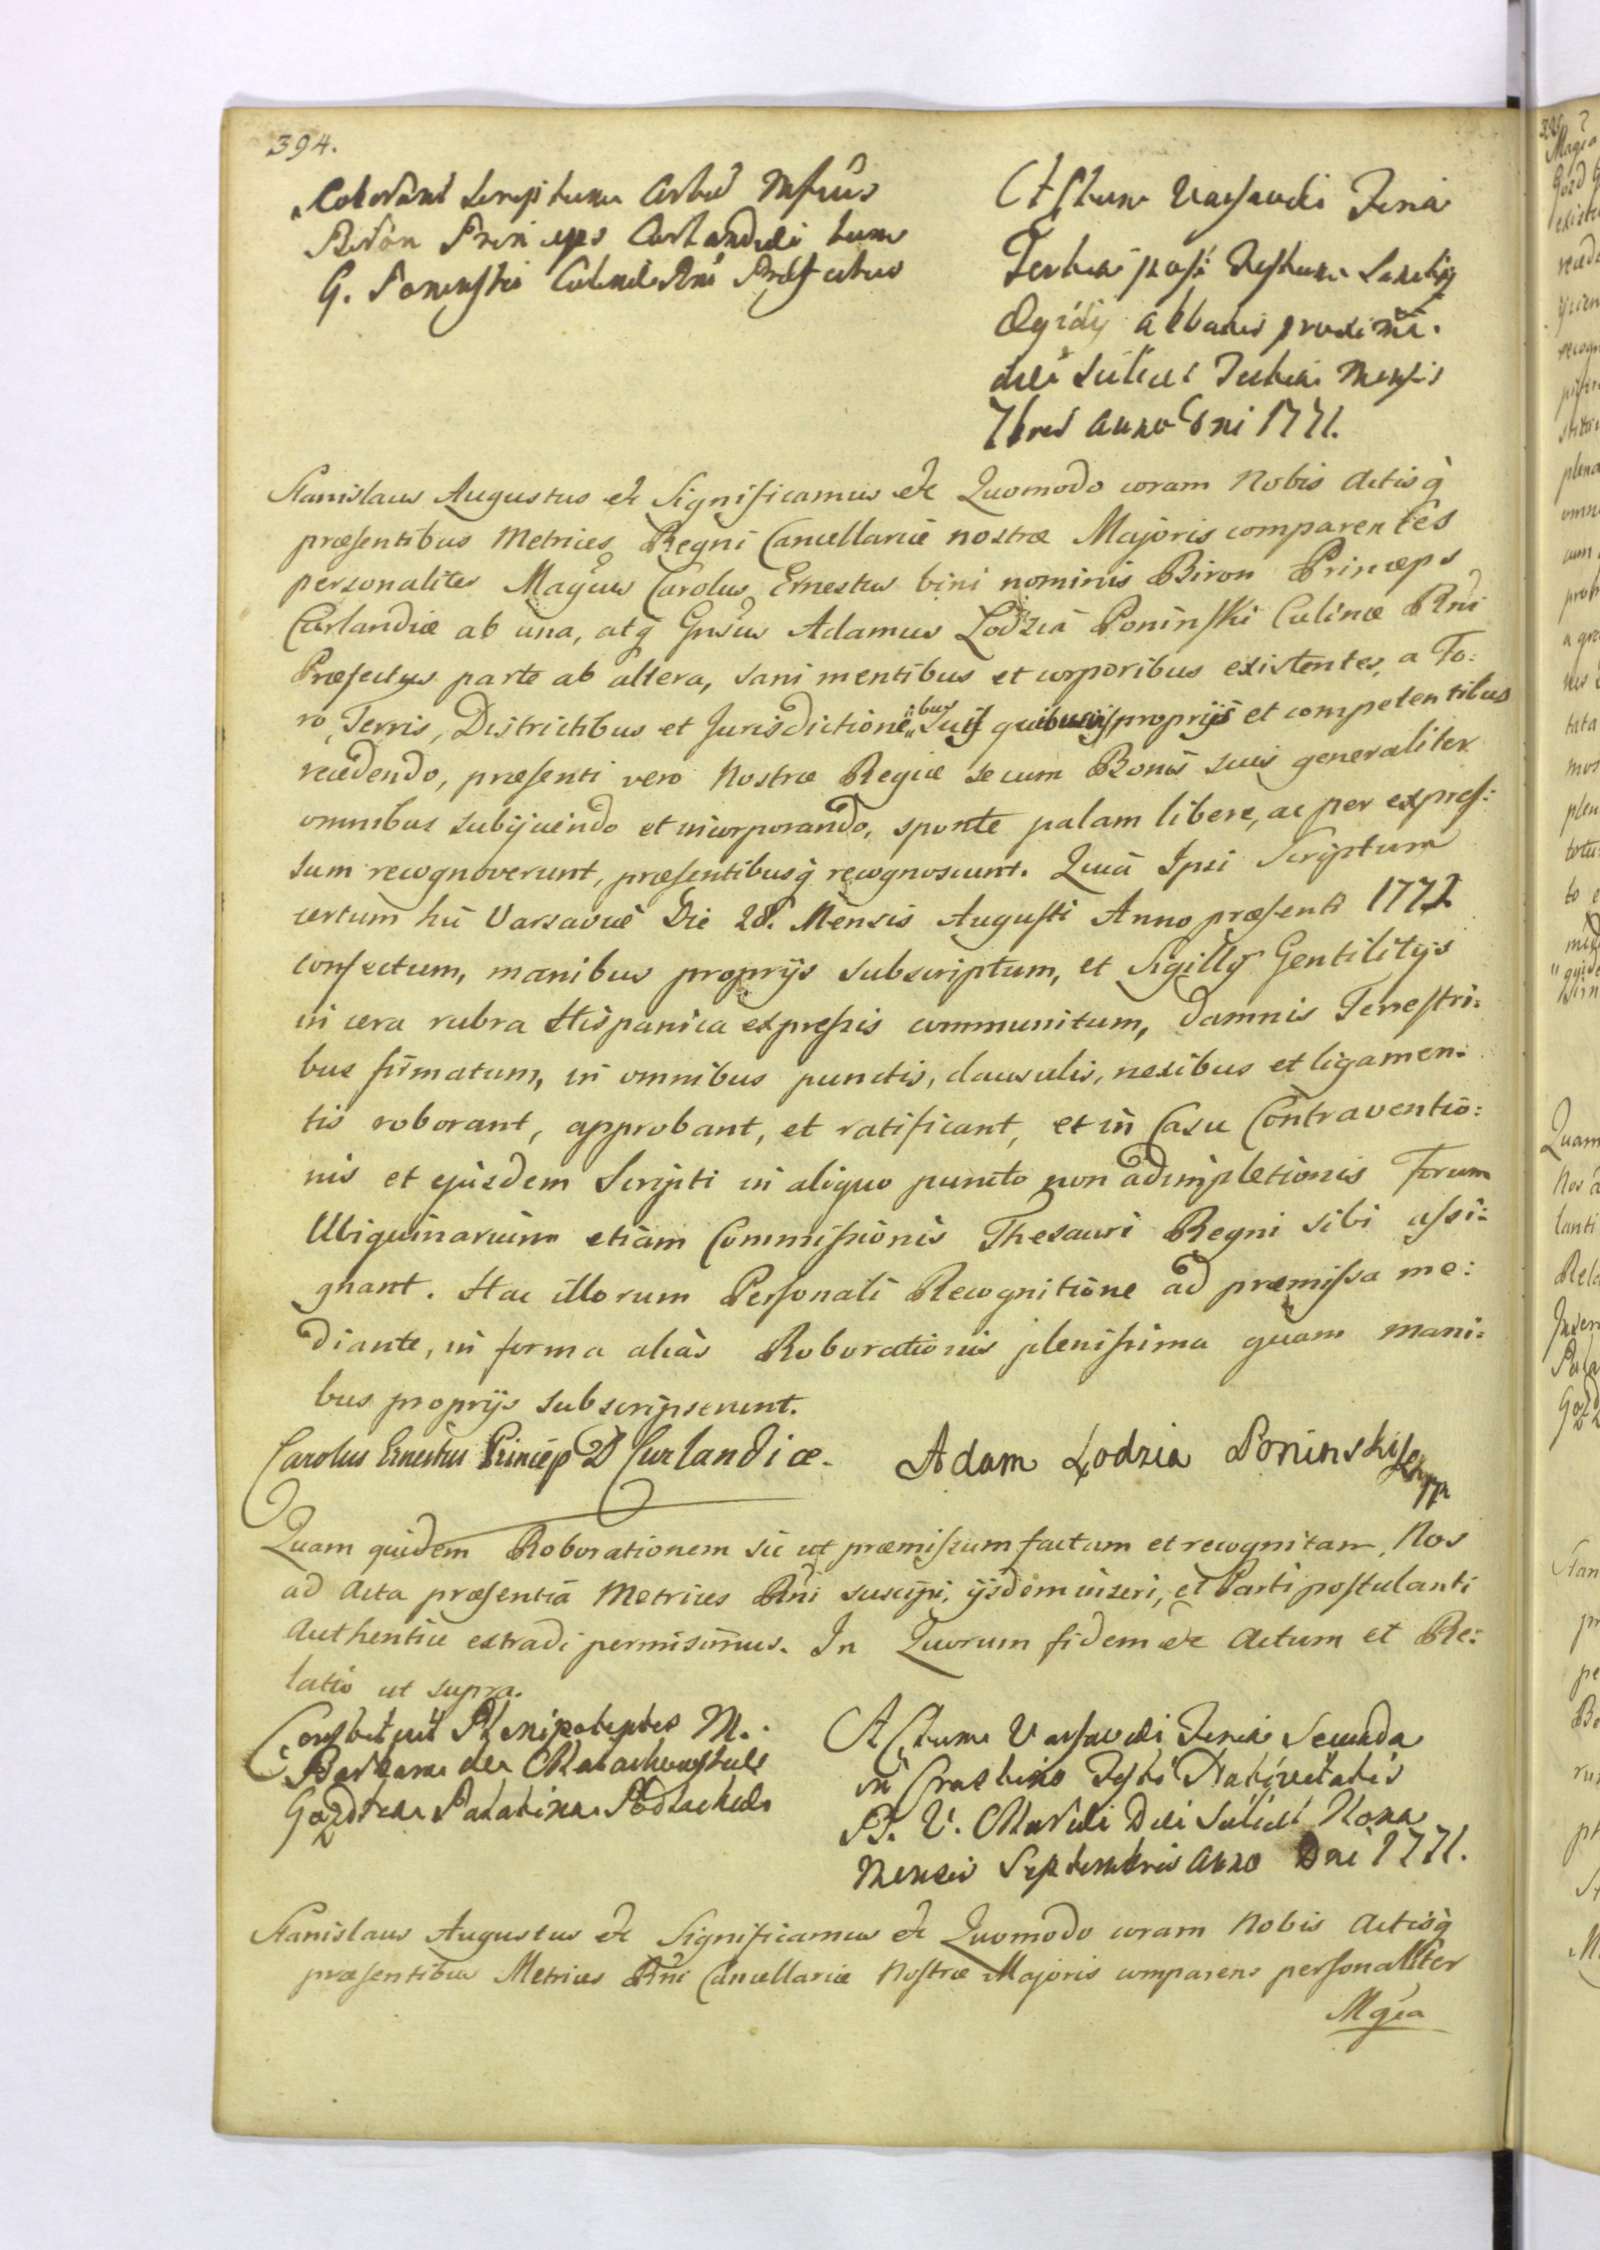 394.
Roborant Scriptum Certum Mfcus
Biron Princeps Curlandiæ tum
G. Poninski Culinæ Rni Præfectus
Actum Varsaviæ Feria
Tertia post Festum Sancti
Ægidij Abbatis proxima.
die scilicet Tertia Mensis
7bris Anno Dni 1771.
Stanislaus Augustus etc Significamus etc Quomodo coram Nobis Actisq̃
præsentibus Metrices Regni Cancellariæ nostræ Majoris comparentes
personaliter Magcus Carolus Ernestus bini nominis Biron Princeps
Curlandiæ ab una, atq̃ Gnsus Adamus Lodzia Poninski Culinæ Rni
Præfectus parte ab altera, sani mentibus et corporibus existentes, a Fo:
ro, Terris, Districtibus et Jurisdictionibus suis quibusvis proprijs et competentibus
recedendo, præsenti vero Nostræ Regiæ se cum Bonis suis generaliter
omnibus subijciendo et incorporando, sponte palam libere, ac per expres:
sum recognoverunt, præsentibusq̃ recognoscunt. Quia Ipsi Scriptum
certum hic Varsaviæ Die 28. Mensis Augusti Anno præsenti 1771
confectum, manibus proprijs subscriptum, et Sigillis Gentilitijs
in cera rubra Hispanica expressis communitum, damnis Terrestri:
bus firmatum, in omnibus punctis, clausulis, nexibus et ligamen:
tis roborant, approbant, et ratificant, et in Casu Contraventio:
nis et ejusdem Scripti in aliquo puncto non adimpletionis Forum
Ubiquinarium etiam Commissionis Thesauri Regni sibi assi:
gnant. Hac illorum Personali Recognitione ad præmissa me:
diante, in forma alias Roborationis plenissima quam mani:
bus proprijs subscripserunt.
Carolus Ernestus Princep D Curlandiæ. Adam Lodzia Poninski
Quam quidem Roborationem sic ut præmissum factam et recognitam, Nos
ad Acta præsentia Metrices Rni suscipi, ijsdem inseri, et Parti postulanti
Authentice extradi permisimus. In Quorum fidem etc Actum et Re:
latio ut supra.
Constituit Plenipotentes M.
Barbara de
Gozdzka Palatina Podlachiæ
Actum Varsaviæ Feria Secunda
in Crastino Festi Nativitatis
B. V. Mariæ Die scilicet Nona
Mensis Septembris Anno Dni 1771.
Stanislaus Augustus etc Significamus etc Quomodo coram Nobis Actisq̃
præsentibus Metrices Rni Cancellariæ Nostræ Majoris comparens personaliter
Mgca